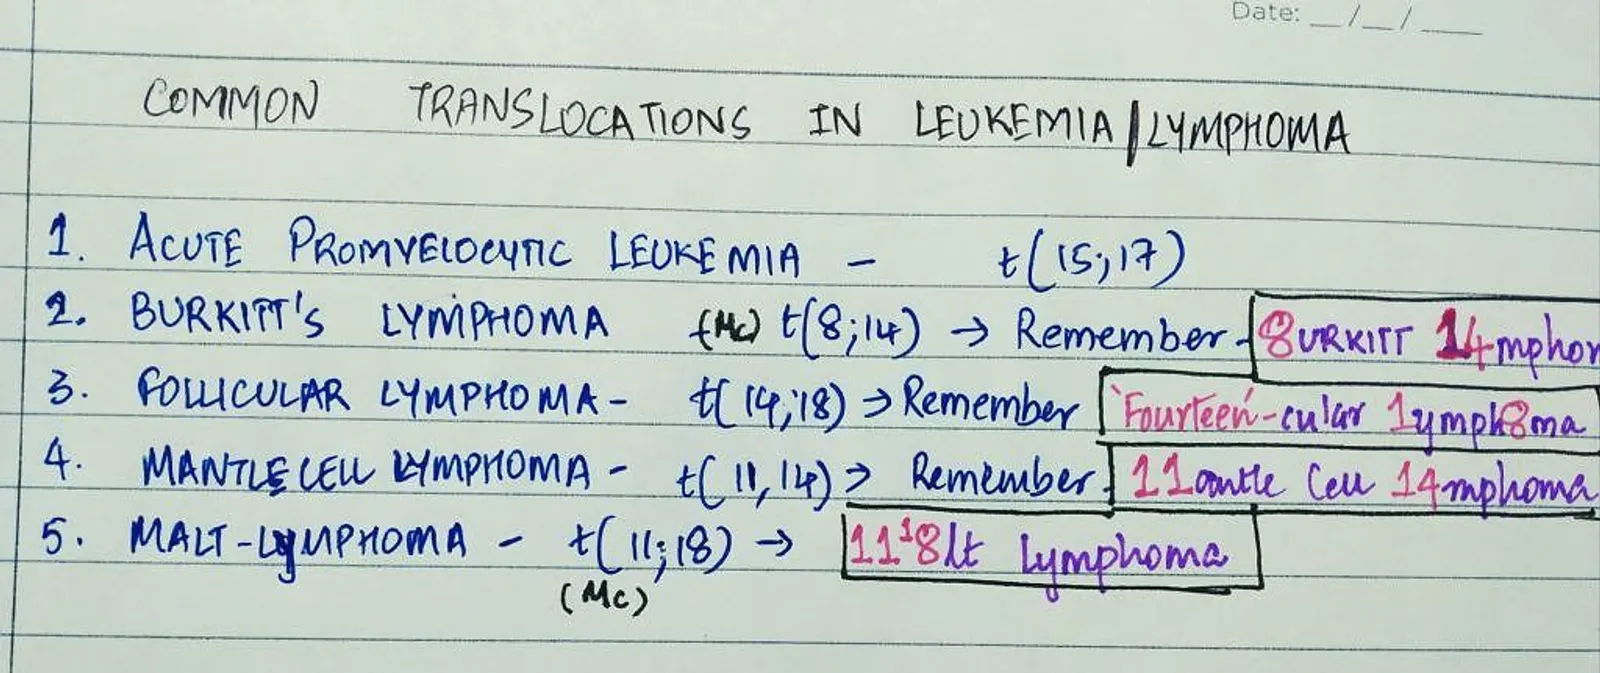 Date: __/__/____
COMMON TRANSLOCATIONS IN LEUKEMIA/LYMPHOMA
1. ACUTE PROMYELOCYTIC LEUKEMIA - t(15;17)
2. BURKITT'S LYMPHOMA (MC) t(8;14) → Remember - 8URKITT 14mphom
3. FOLLICULAR LYMPHOMA - t(14;18) → Remember 'Fourteen'-cular 1ymph8ma
4. MANTLE CELL LYMPHOMA - t(11,14) → Remember - 11antle Cell 14mphoma
5. MALT-LYMPHOMA - t(11;18) → 11¹8lt lymphoma
(MC)